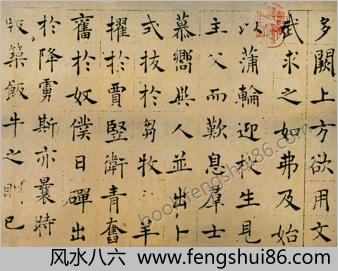 多闕上方欲用文
武求之如弗及始
以蒲輪迎枚生見
主父而歎息羣士
慕嚮異人並出卜
式拔於芻牧羊
擢於賈豎衛青奮
奮於奴僕日磾出
於降虜斯亦曩時
版築飯牛之朋已
book.fengshui86.com
风水八六 www.fengshui86.com